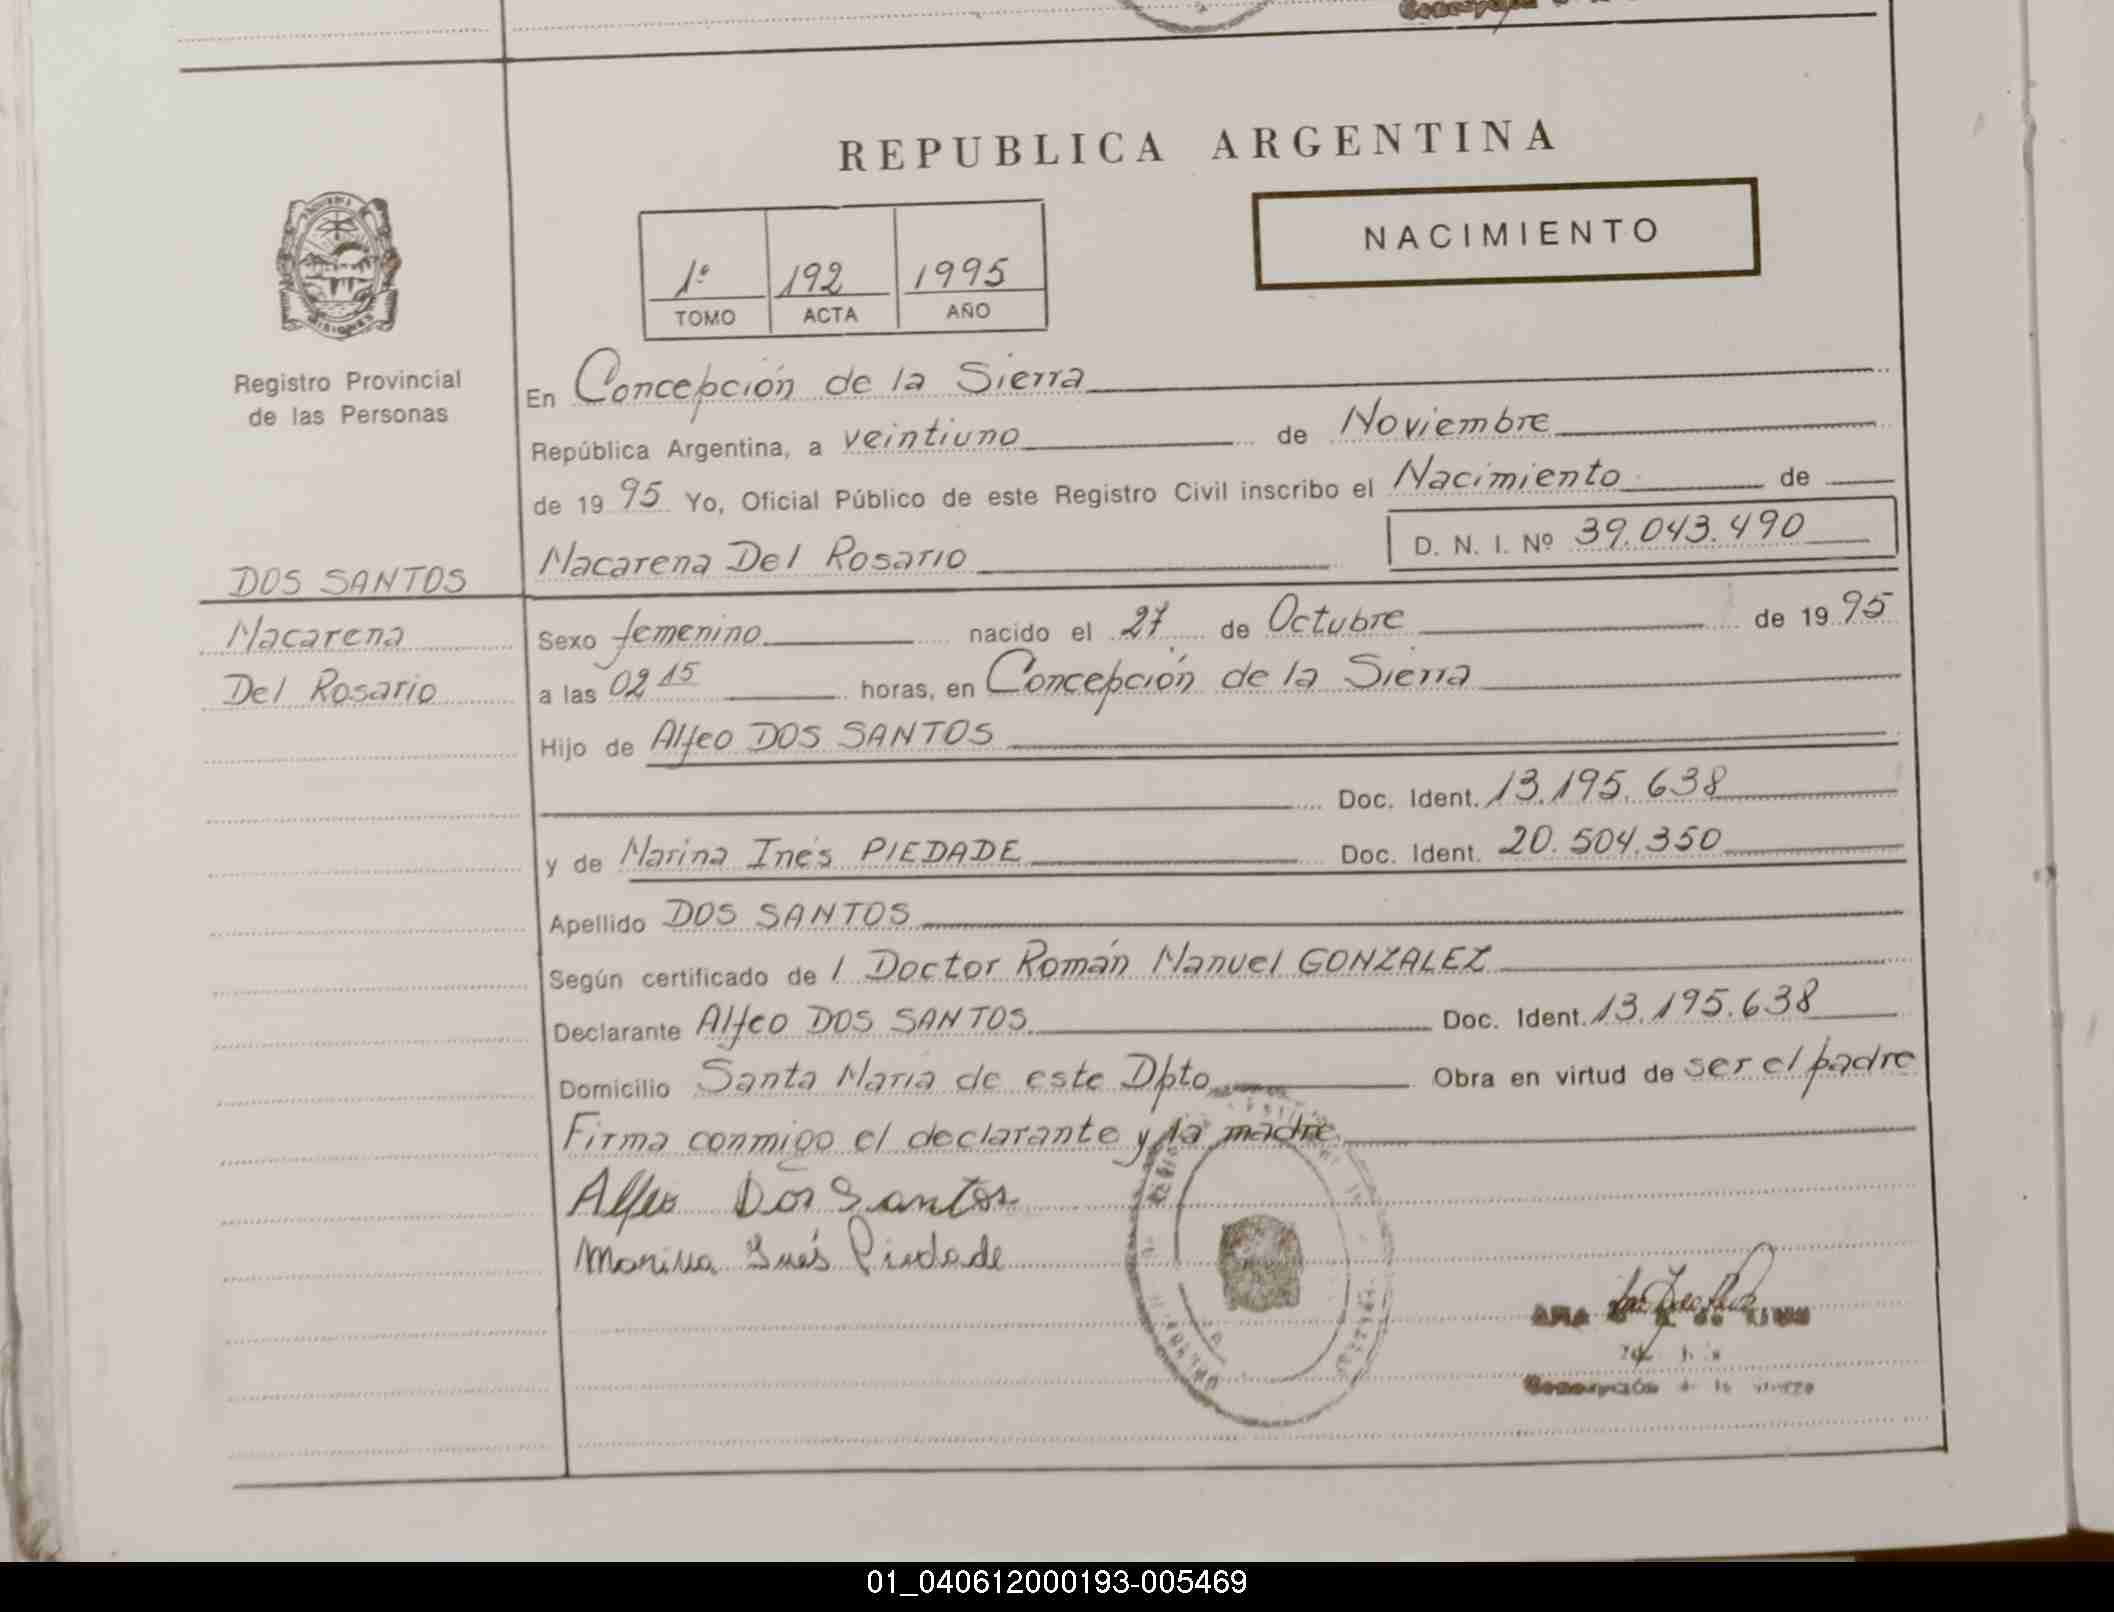 REPUBLICA ARGENTINA
NACIMIENTO
1º 192 1995
TOMO ACTA AÑO
Registro Provincial
de las Personas
En Concepción de la Sierra
República Argentina, a veintiuno de Noviembre
de 19 95 Yo, Oficial Público de este Registro Civil inscribo el Nacimiento de
Macarena Del Rosario D. N. I. Nº 39.043.490
DOS SANTOS
Macarena
Del Rosario
Sexo femenino nacido el 27 de Octubre de 19 95
a las 02 15 horas, en Concepción de la Sierra
Hijo de Alfeo DOS SANTOS
Doc. Ident. 13.195.638
y de Marina Inés PIEDADE Doc. Ident. 20.504.350
Apellido DOS SANTOS
Según certificado de l Doctor Román Manuel GONZALEZ
Declarante Alfeo DOS SANTOS Doc. Ident. 13.195.638
Domicilio Santa María de este Dpto Obra en virtud de ser el padre
Firma conmigo el declarante y la madre
Alfeo Dos Santos
Marina Inés Piedade
01_040612000193-005469